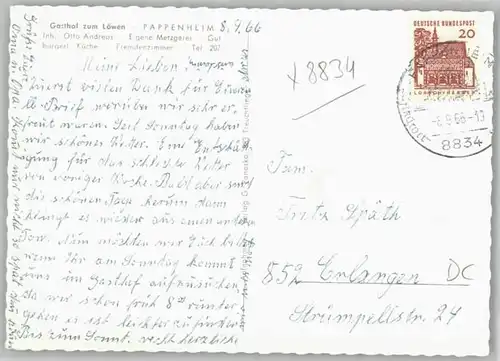 Gasthof zum Löwen PAPPENHEIM 8.9.66
Inh. Otto Andreas Eigene Metzgerei Gut
bürgerl. Küche Fremdenzimmer Tel 207
Meine Lieben!
Zuerst vielen Dank für Euren
Brief worüber wir sehr er-
freut waren. Seit Sonntag haben
wir schönes Wetter. Eine Entschä-
digung für das schlechte Wetter
von voriger Woche. Bald aber sind
die schönen Tage herum dann
klingt es wieder aus einem anderen
Nun möchten wir Euch bitten
wenn Ihr am Sonntag kommt
uns im Gasthof aufzusuchen,
da wir schon früh 8 runter
gehen es ist leichter zu finden
Bis zum Sonnt. recht herzliche
Grüße Euer
Oma u. Opa. Kommt nur nicht so spät
x 8834
DEUTSCHE BUNDESPOST
20
-8.9.66-13
8834
Fam.
Fritz Späth
852 Erlangen
Strümpellstr. 24